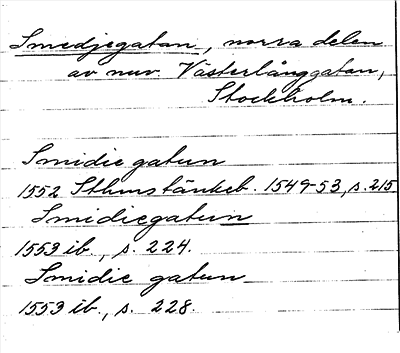 Smedjegatan, norra delen
av nuv. Västerlånggatan,
Stockholm.
Smidie gatun
1552 Sthms tänkeb. 1549-53, s. 215
Smidiegatun
1553 ib., s. 224.
Smidie gatun
1553 ib., s. 228.